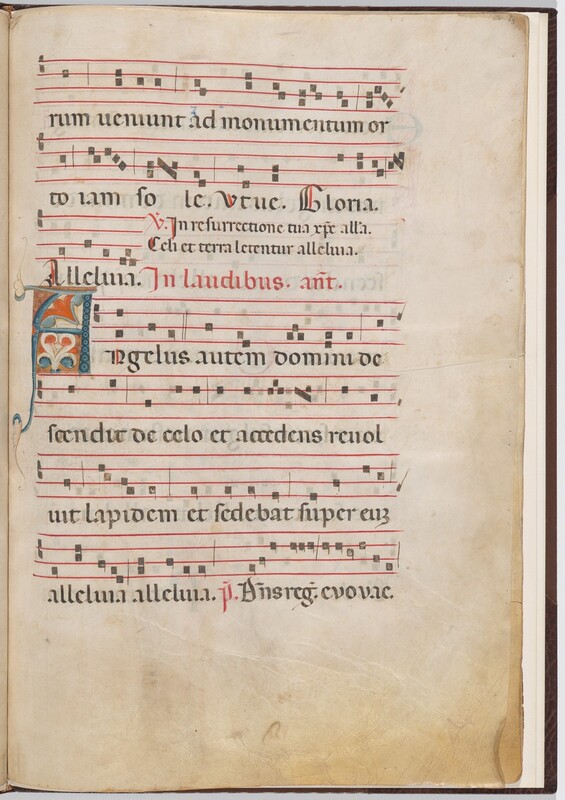 rum ueniunt ad monumentum or
to iam so le. vt ue. Gloria.
V. In resurrectione tua xp̄e all'a.
Celi et terra letentur alleluia.
Alleluia. In laudibus. an̄t.
Angelus autem domini de
scendit de celo et accedens reuol
uit lapidem et sedebat super euꝫ
alleluia alleluia. p̄. Dn̄s reg̃. evovae.